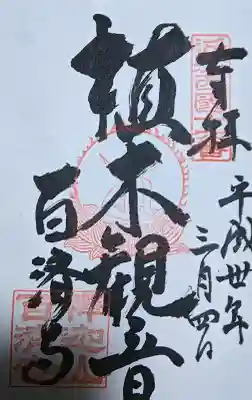 奉拝
平成卅年
三月四日
植木觀音
百済寺